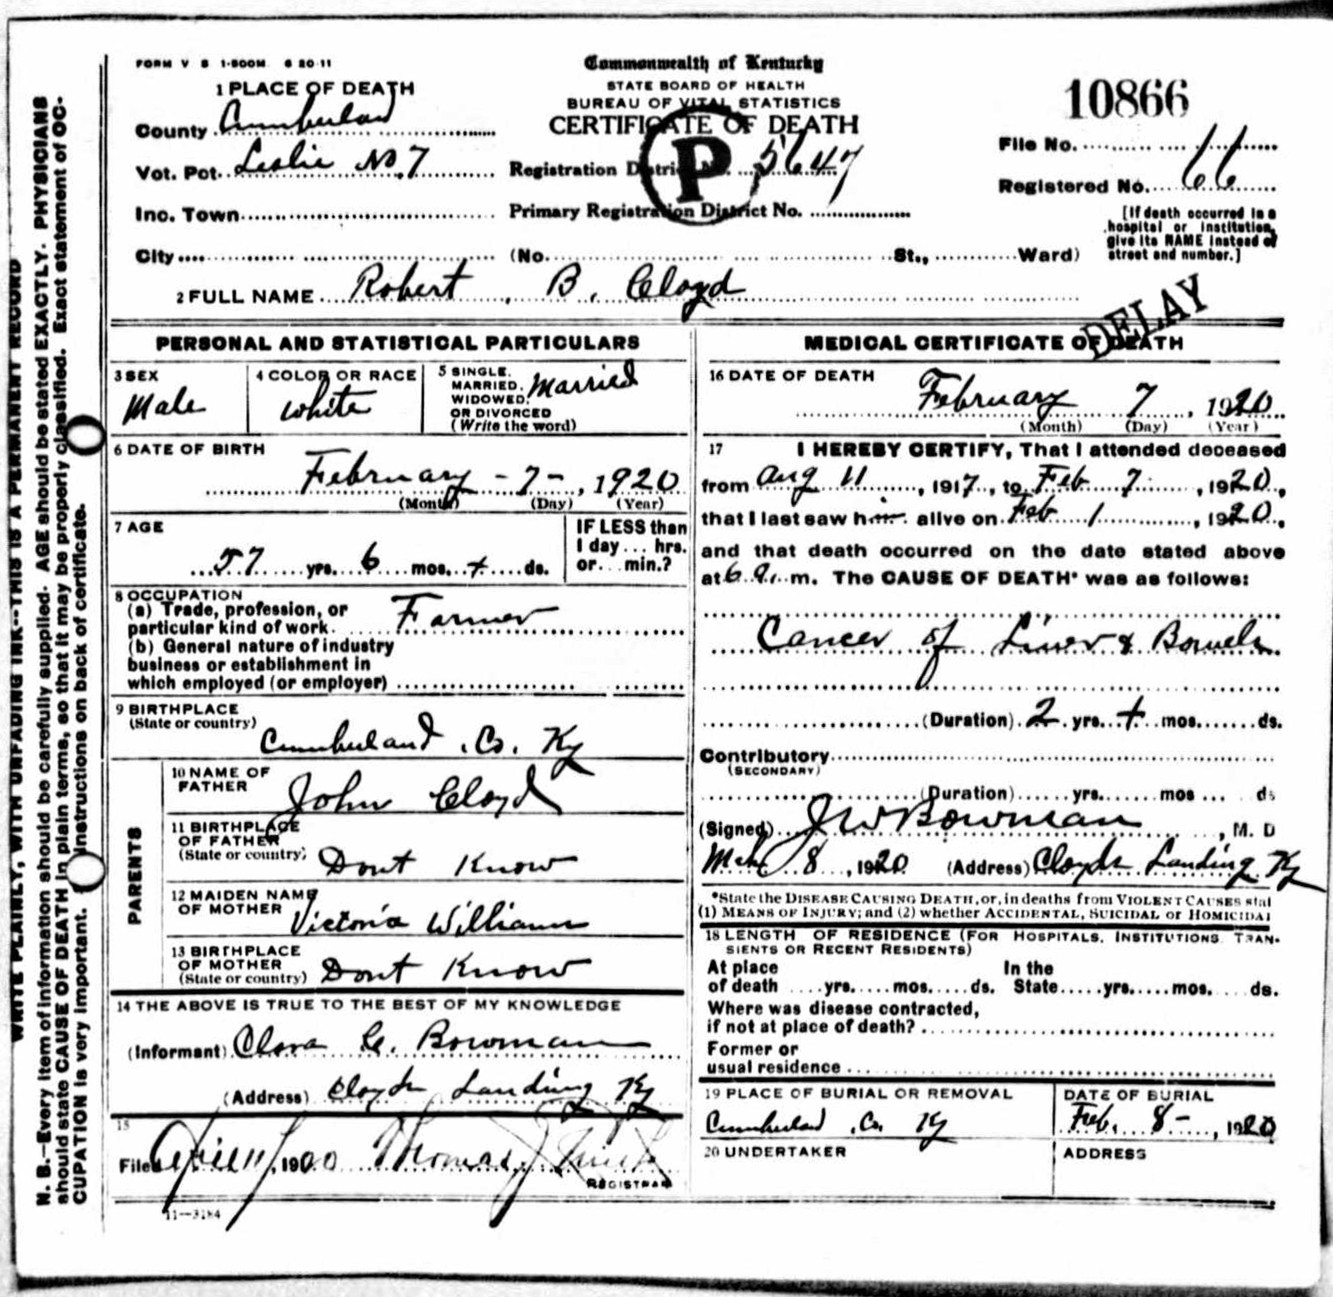 FORM V S 1-500M 6 20 11
Commonwealth of Kentucky
STATE BOARD OF HEALTH
BUREAU OF VITAL STATISTICS
CERTIFICATE OF DEATH
10866
1 PLACE OF DEATH
County Cumberland
Vot. Pct. Leslie No 7
Inc. Town
City
Registration District No. 5647
P
Primary Registration District No.
(No. St., Ward)
File No.
Registered No. 66
[If death occurred in a
hospital or institution,
give its NAME instead of
street and number.]
2 FULL NAME Robert B. Cloyd
DELAY
PERSONAL AND STATISTICAL PARTICULARS
3 SEX
Male
4 COLOR OR RACE
White
5 SINGLE,
MARRIED,
WIDOWED,
OR DIVORCED
(Write the word)
Married
6 DATE OF BIRTH
February - 7 - , 1920
(Month) (Day) (Year)
7 AGE
57 yrs. 6 mos. + ds.
IF LESS than
1 day ... hrs.
or ... min.?
8 OCCUPATION
(a) Trade, profession, or
particular kind of work. Farmer
(b) General nature of industry
business or establishment in
which employed (or employer)
9 BIRTHPLACE
(State or country)
Cumberland Co. Ky
PARENTS
10 NAME OF
FATHER
John Cloyd
11 BIRTHPLACE
OF FATHER
(State or country) Dont Know
12 MAIDEN NAME
OF MOTHER
Victoria Williams
13 BIRTHPLACE
OF MOTHER
(State or country) Dont Know
14 THE ABOVE IS TRUE TO THE BEST OF MY KNOWLEDGE
(Informant) Clara C. Bowman
(Address) Cloyds Landing Ky
15
Filed April 11, 1920 Thomas J
REGISTRAR
11-3184
MEDICAL CERTIFICATE OF DEATH
16 DATE OF DEATH
February 7, 1920
(Month) (Day) (Year)
17 I HEREBY CERTIFY, That I attended deceased
from Aug 11, 1917, to Feb 7, 1920,
that I last saw him alive on Feb 1, 1920,
and that death occurred on the date stated above
at 6 a. m. The CAUSE OF DEATH* was as follows:
Cancer of Liver & Bowels
(Duration) 2 yrs. + mos. ds.
Contributory
(SECONDARY)
(Duration) yrs. mos ds
(Signed) J W Bowman, M. D
Mch 8, 1920 (Address) Cloyds Landing Ky
*State the DISEASE CAUSING DEATH, or, in deaths from VIOLENT CAUSES stat
(1) MEANS OF INJURY; and (2) whether ACCIDENTAL, SUICIDAL or HOMICIDAL
18 LENGTH OF RESIDENCE (FOR HOSPITALS, INSTITUTIONS, TRAN-
SIENTS OR RECENT RESIDENTS)
At place
of death yrs. mos. ds.
In the
State yrs. mos. ds.
Where was disease contracted,
if not at place of death?
Former or
usual residence
19 PLACE OF BURIAL OR REMOVAL
Cumberland Co. Ky
DATE OF BURIAL
Feb. 8 - , 1920
20 UNDERTAKER
ADDRESS
WRITE PLAINLY, WITH UNFADING INK--THIS IS A PERMANENT RECORD
N. B.--Every item of information should be carefully supplied. AGE should be stated EXACTLY. PHYSICIANS
should state CAUSE OF DEATH in plain terms, so that it may be properly classified. Exact statement of OC-
CUPATION is very important. instructions on back of certificate.